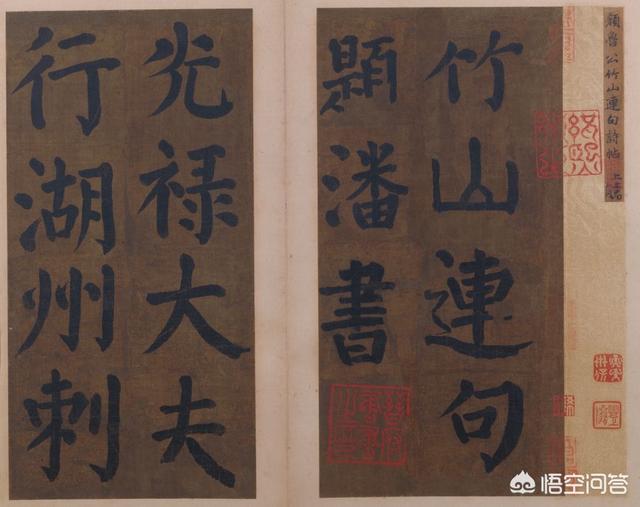 顔魯公竹山連句詩帖 上上
竹山連句
題潘書
光禄大夫
行湖州刺
悟空问答